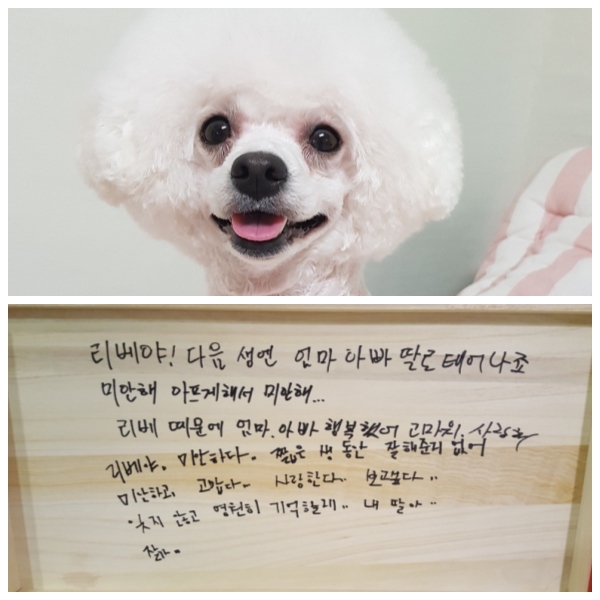 리베야! 다음 생엔 엄마 아빠 딸로 태어나죠
미안해 아프게해서 미안해...
리베 때문에 엄마.아빠 행복했어 고마워. 사랑해
리베야. 미안하다. 짧은 생 동안 잘해준게 없어
미안하고, 고맙다.. 사랑한다.. 보고싶다..
잊지 않고 영원히 기억할래.. 내 딸아..
잘가.